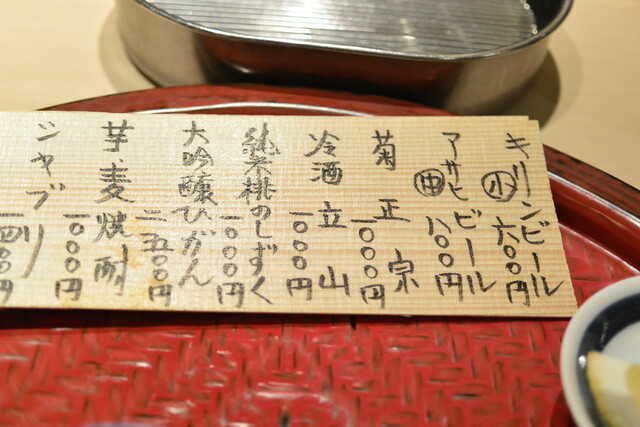 キリンビール
㊙小 六〇〇円
アサヒビール
㊥ 八〇〇円
菊正宗
一〇〇〇円
冷酒 立山
一〇〇〇円
純米桃のしずく
一〇〇〇円
大吟醸ひがん
二五〇〇円
芋、麦焼酎
一〇〇〇円
ジャブリ
一四〇〇円